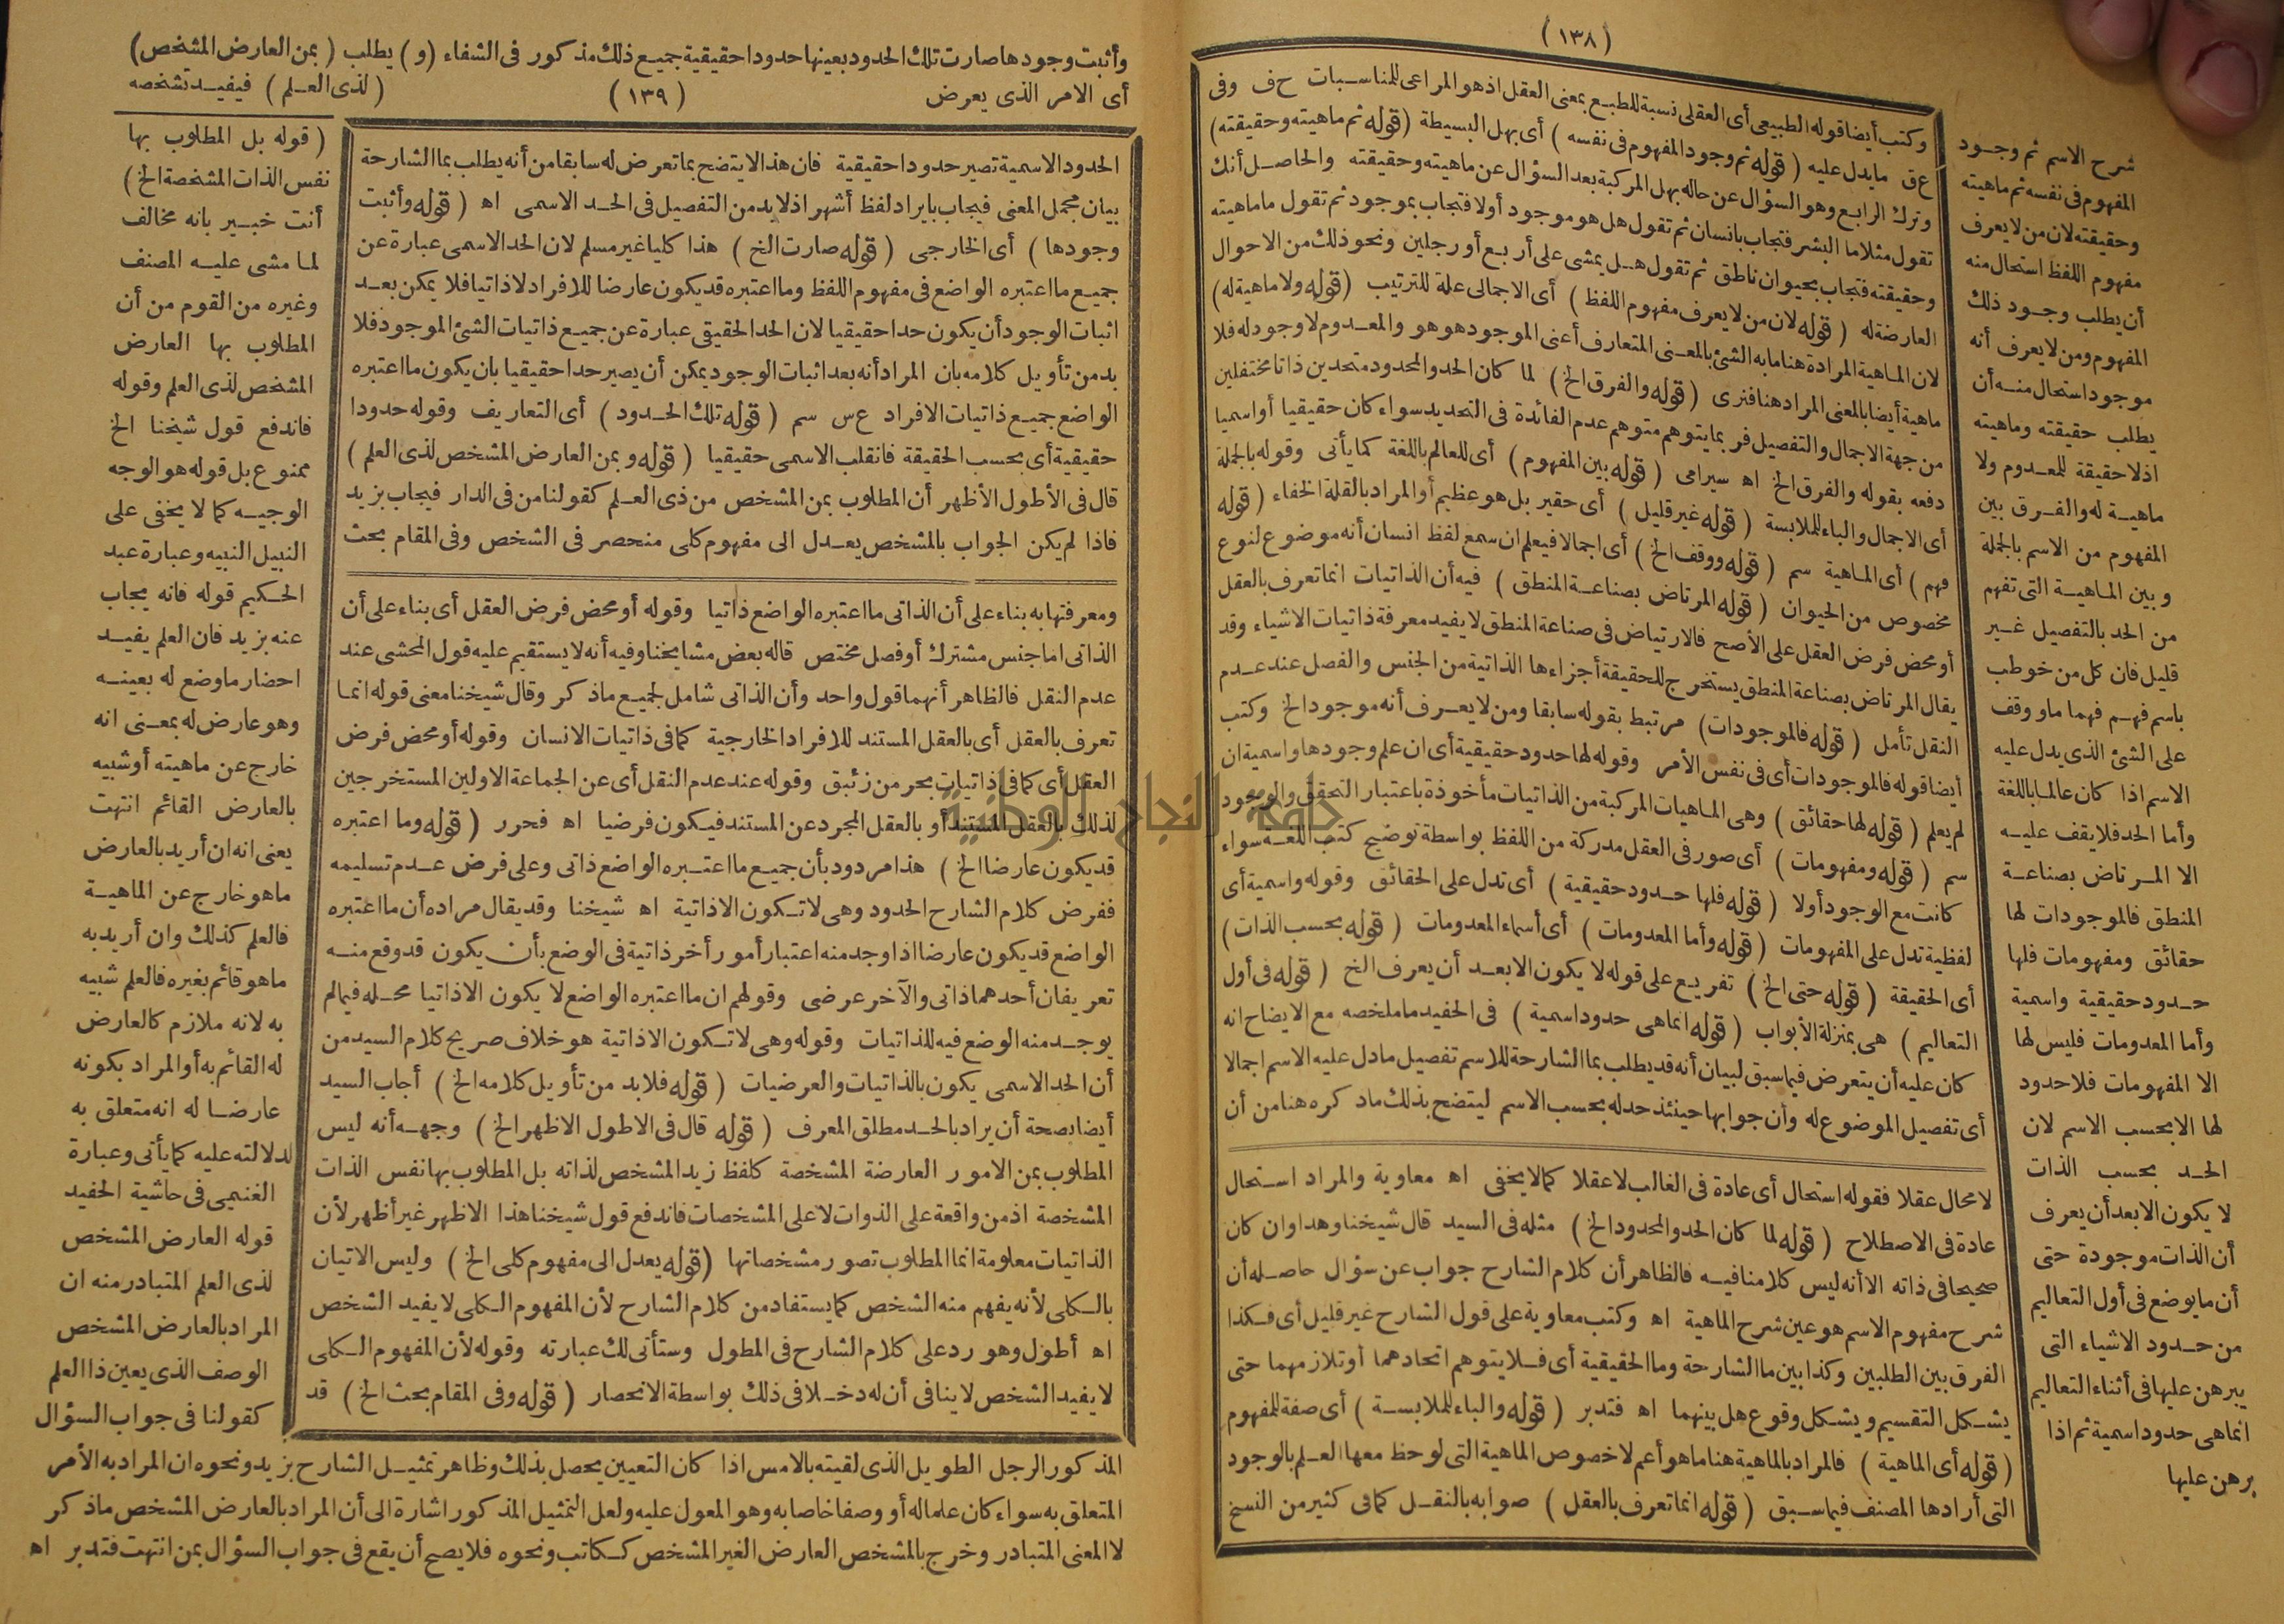 (١٣٨)
وكتب أيضا قوله الطبيعي أى العقلى نسبة للطبع بمعنى العقل اذ هو المراعى للمناسبات ح ف وفى
ع ق مايدل عليه (قوله ثم وجود المفهوم فى نفسه) أى بهل البسيطة (قوله ثم ماهيته وحقيقته)
وترك الرابع وهو السؤال عن حاله بهل المركبة بعد السؤال عن ماهيته وحقيقته والحاصل أنك
تقول مثلا ما البشر فتجاب بانسان ثم تقول هل هو موجود أولا فتجاب بموجود ثم تقول ما ماهيته
وحقيقته فتجاب بحيوان ناطق ثم تقول هل يمشى على أربع أو رجلين ونحو ذلك من الاحوال
العارضة له (قوله لان من لا يعرف مفهوم اللفظ) أى الاجمالى علة للترتيب (قوله ولا ماهية له)
لان الماهية المرادة هنا مابه الشئ بالمعنى المتعارف أعنى الموجود هو هو والمعدوم لا وجود له فلا
ماهية أيضا بالمعنى المراد هنا فنرى (قوله والفرق الخ) لما كان الحد والمحدود متحدين ذاتا مختلفين
من جهة الاجمال والتفصيل فربما يتوهم متوهم عدم الفائدة فى التحديد سواء كان حقيقيا أو اسميا
دفعه بقوله والفرق الخ اه سيرامى (قوله بين المفهوم) أى للعالم باللغة كما يأتى وقوله بالجملة
أى الاجمال والباء للملابسة (قوله غير قليل) أى حقير بل هو عظيم أو المراد بالقلة الخفاء (قوله
فهم) أى الماهية سم (قوله ووقف الخ) أى اجمالا فيعلم ان سمع لفظ انسان أنه موضوع لنوع
مخصوص من الحيوان (قوله المرتاض بصناعة المنطق) فيه أن الذاتيات انما تعرف بالعقل
أو محض فرض العقل على الأصح فالارتياض فى صناعة المنطق لا يفيد معرفة ذاتيات الاشياء وقد
يقال المرتاض بصناعة المنطق يستخرج للحقيقة أجزاءها الذاتية من الجنس والفصل عند عدم
النقل تأمل (قوله فالموجودات) مرتبط بقوله سابقا ومن لا يعرف أنه موجود الخ وكتب
أيضا قوله فالموجودات أى فى نفس الأمر وقوله لها حدود حقيقية أى ان علم وجودها واسمية ان
لم يعلم (قوله لها حقائق) وهى الماهيات المركبة من الذاتيات مأخوذة باعتبار التحقق والوجود
سم (قوله ومفهومات) أى صور فى العقل مدركة من اللفظ بواسطة توضيح كتب اللغة سواء
كانت مع الوجود أولا (قوله فلها حدود حقيقية) أى تدل على الحقائق وقوله واسمية أى
لفظية تدل على المفهومات (قوله وأما المعدومات) أى أسماء المعدومات (قوله بحسب الذات)
أى الحقيقة (قوله حتى الخ) تفريع على قوله لا يكون الا بعد أن يعرف الخ (قوله فى أول
التعاليم) هى بمنزلة الأبواب (قوله انما هى حدود اسمية) فى الحفيد ما ملخصه مع الايضاح انه
كان عليه أن يتعرض فيما سبق لبيان أنه قد يطلب بما الشارحة للاسم تفصيل مادل عليه الاسم اجمالا
أى تفصيل الموضوع له وأن جوابها حينئذ حد له بحسب الاسم ليتضح بذلك ماذكره هنا من أن
لا محال عقلا فقوله استحال أى عادة فى الغالب لا عقلا كما لا يخفى اه معاوية والمراد استحال
عادة فى الاصطلاح (قوله لما كان الحد والمحدود الخ) مثله فى السيد قال شيخنا وهذا وان كان
صحيحا فى ذاته الا أنه ليس كلامنا فيه فالظاهر أن كلام الشارح جواب عن سؤال حاصله أن
شرح مفهوم الاسم هو عين شرح الماهية اه وكتب معاوية على قول الشارح غير قليل أى فكذا
الفرق بين الطلبين وكذا بين ما الشارحة وما الحقيقية أى فلا يتوهم اتحادهما أو تلازمهما حتى
يشكل التقسيم ويشكل وقوع هل بينهما اه فتدبر (قوله والباء للملابسة) أى صفة للمفهوم
(قوله أى الماهية) فالمراد بالماهية هنا ما هو أعم لا خصوص الماهية التى لوحظ معها العلم بالوجود
التى أرادها المصنف فيما سبق (قوله انما تعرف بالعقل) صوابه بالنقل كما فى كثير من النسخ
شرح الاسم ثم وجود
المفهوم فى نفسه ثم ماهيته
وحقيقته لان من لا يعرف
مفهوم اللفظ استحال منه
أن يطلب وجود ذلك
المفهوم ومن لا يعرف أنه
موجود استحال منه أن
يطلب حقيقته وماهيته
اذ لا حقيقة للمعدوم ولا
ماهية له والفرق بين
المفهوم من الاسم بالجملة
وبين الماهية التى تفهم
من الحد بالتفصيل غير
قليل فان كل من خوطب
باسم فهم فهما ما ووقف
على الشئ الذى يدل عليه
الاسم اذا كان عالما باللغة
وأما الحد فلا يقف عليه
الا المرتاض بصناعة
المنطق فالموجودات لها
حقائق ومفهومات فلها
حدود حقيقية واسمية
وأما المعدومات فليس لها
الا المفهومات فلا حدود
لها الا بحسب الاسم لان
الحد بحسب الذات
لا يكون الا بعد أن يعرف
أن الذات موجودة حتى
أن ما يوضع فى أول التعاليم
من حدود الاشياء التى
يبرهن عليها فى أثناء التعاليم
انما هى حدود اسمية ثم اذا
برهن عليها
وأثبت وجودها صارت تلك الحدود بعينها حدودا حقيقية جميع ذلك مذكور فى الشفاء (و) يطلب (بمن العارض المشخص)
أى الامر الذى يعرض (١٣٩) (لذى العلم) فيفيد تشخصه
الحدود الاسمية تصير حدودا حقيقية فان هذا لا يتضح بما تعرض له سابقا من أنه يطلب بما الشارحة
بيان مجمل المعنى فيجاب بايراد لفظ أشهر اذ لا بد من التفصيل فى الحد الاسمى اه (قوله وأثبت
وجودها) أى الخارجى (قوله صارت الخ) هذا كليا غير مسلم لان الحد الاسمى عبارة عن
جميع ما اعتبره الواضع فى مفهوم اللفظ وما اعتبره قد يكون عارضا للافراد لا ذاتيا فلا يمكن بعد
اثبات الوجود أن يكون حدا حقيقيا لان الحد الحقيقى عبارة عن جميع ذاتيات الشئ الموجود فلا
بد من تأويل كلامه بان المراد أنه بعد اثبات الوجود يمكن أن يصير حدا حقيقيا بان يكون ما اعتبره
الواضع جميع ذاتيات الافراد ع س سم (قوله تلك الحدود) أى التعاريف وقوله حدودا
حقيقية أى بحسب الحقيقة فانقلب الاسمى حقيقيا (قوله وبمن العارض المشخص لذى العلم)
قال فى الأطول الأظهر أن المطلوب بمن المشخص من ذى العلم كقولنا من فى الدار فيجاب بزيد
فاذا لم يكن الجواب بالمشخص يعدل الى مفهوم كلى منحصر فى الشخص وفى المقام بحث
ومعرفتها به بناء على أن الذاتى ما اعتبره الواضع ذاتيا وقوله أو محض فرض العقل أى بناء على أن
الذاتى اما جنس مشترك أو فصل مختص قاله بعض مشايخنا وفيه أنه لا يستقيم عليه قول المحشى عند
عدم النقل فالظاهر أنهما قول واحد وأن الذاتى شامل لجميع ماذكر وقال شيخنا معنى قوله انما
تعرف بالعقل أى بالعقل المستند للافراد الخارجية كما فى ذاتيات الانسان وقوله أو محض فرض
العقل أى كما فى ذاتيات بحر من زئبق وقوله عند عدم النقل أى عن الجماعة الاولين المستخرجين
لذلك بالعقل المستند أو بالعقل المجرد عن المستند فيكون فرضيا اه فحرر (قوله وما اعتبره
قد يكون عارضا الخ) هذا مردود بأن جميع ما اعتبره الواضع ذاتى وعلى فرض عدم تسليمه
ففرض كلام الشارح الحدود وهى لا تكون الا ذاتية اه شيخنا وقد يقال مراده أن ما اعتبره
الواضع قد يكون عارضا اذا وجد منه اعتبار أمور أخر ذاتية فى الوضع بأن يكون قد وقع منه
تعريفان أحدهما ذاتى والآخر عرضى وقولهم ان ما اعتبره الواضع لا يكون الا ذاتيا محله فيما لم
يوجد منه الوضع فيه للذاتيات وقوله وهى لا تكون الا ذاتية هو خلاف صريح كلام السيد من
أن الحد الاسمى يكون بالذاتيات والعرضيات (قوله فلا بد من تأويل كلامه الخ) أجاب السيد
أيضا بصحة أن يراد بالحد مطلق المعرف (قوله قال فى الاطول الاظهر الخ) وجهه أنه ليس
المطلوب بمن الامور العارضة المشخصة كلفظ زيد المشخص لذاته بل المطلوب بها نفس الذات
المشخصة اذ من واقعة على الذوات لا على المشخصات فاندفع قول شيخنا هذا الاظهر غير أظهر لأن
الذاتيات معلومة انما المطلوب تصور مشخصاتها (قوله يعدل الى مفهوم كلى الخ) وليس الاتيان
بالكلى لأنه يفهم منه الشخص كما يستفاد من كلام الشارح لأن المفهوم الكلى لا يفيد الشخص
اه أطول وهو رد على كلام الشارح فى المطول وستأتى لك عبارته وقوله لأن المفهوم الكلى
لا يفيد الشخص لا ينافى أن له دخلا فى ذلك بواسطة الانحصار (قوله وفى المقام بحث الخ) قد
(قوله بل المطلوب بها
نفس الذات المشخصة الخ)
أنت خبير بانه مخالف
لما مشى عليه المصنف
وغيره من القوم من أن
المطلوب بها العارض
المشخص لذى العلم وقوله
فاندفع قول شيخنا الخ
ممنوع بل قوله هو الوجه
الوجيه كما لا يخفى على
النبيل النبيه وعبارة عبد
الحكيم قوله فانه يجاب
عنه بزيد فان العلم يفيد
احضار ما وضع له بعينه
وهو عارض له بمعنى انه
خارج عن ماهيته أو شبيه
بالعارض القائم انتهت
يعنى انه ان أريد بالعارض
ما هو خارج عن الماهية
فالعلم كذلك وان أريد به
ما هو قائم بغيره فالعلم شبيه
به لانه ملازم كالعارض
له القائم به أو المراد بكونه
عارضا له انه متعلق به
لدلالته عليه كما يأتى وعبارة
الغنيمى فى حاشية الحفيد
قوله العارض المشخص
لذى العلم المتبادر منه ان
المراد بالعارض المشخص
الوصف الذى يعين ذا العلم
كقولنا فى جواب السؤال
المذكور الرجل الطويل الذى لقيته بالامس اذا كان التعيين يحصل بذلك وظاهر تمثيل الشارح بزيد ونحوه ان المراد به الأمر
المتعلق به سواء كان علما له أو وصفا خاصا به وهو المعول عليه ولعل التمثيل المذكور اشارة الى أن المراد بالعارض المشخص ماذكر
لا المعنى المتبادر وخرج بالمشخص العارض الغير المشخص ككاتب ونحوه فلا يصح أن يقع فى جواب السؤال بمن انتهت فتدبر اه
جامعة النجاح الوطنية